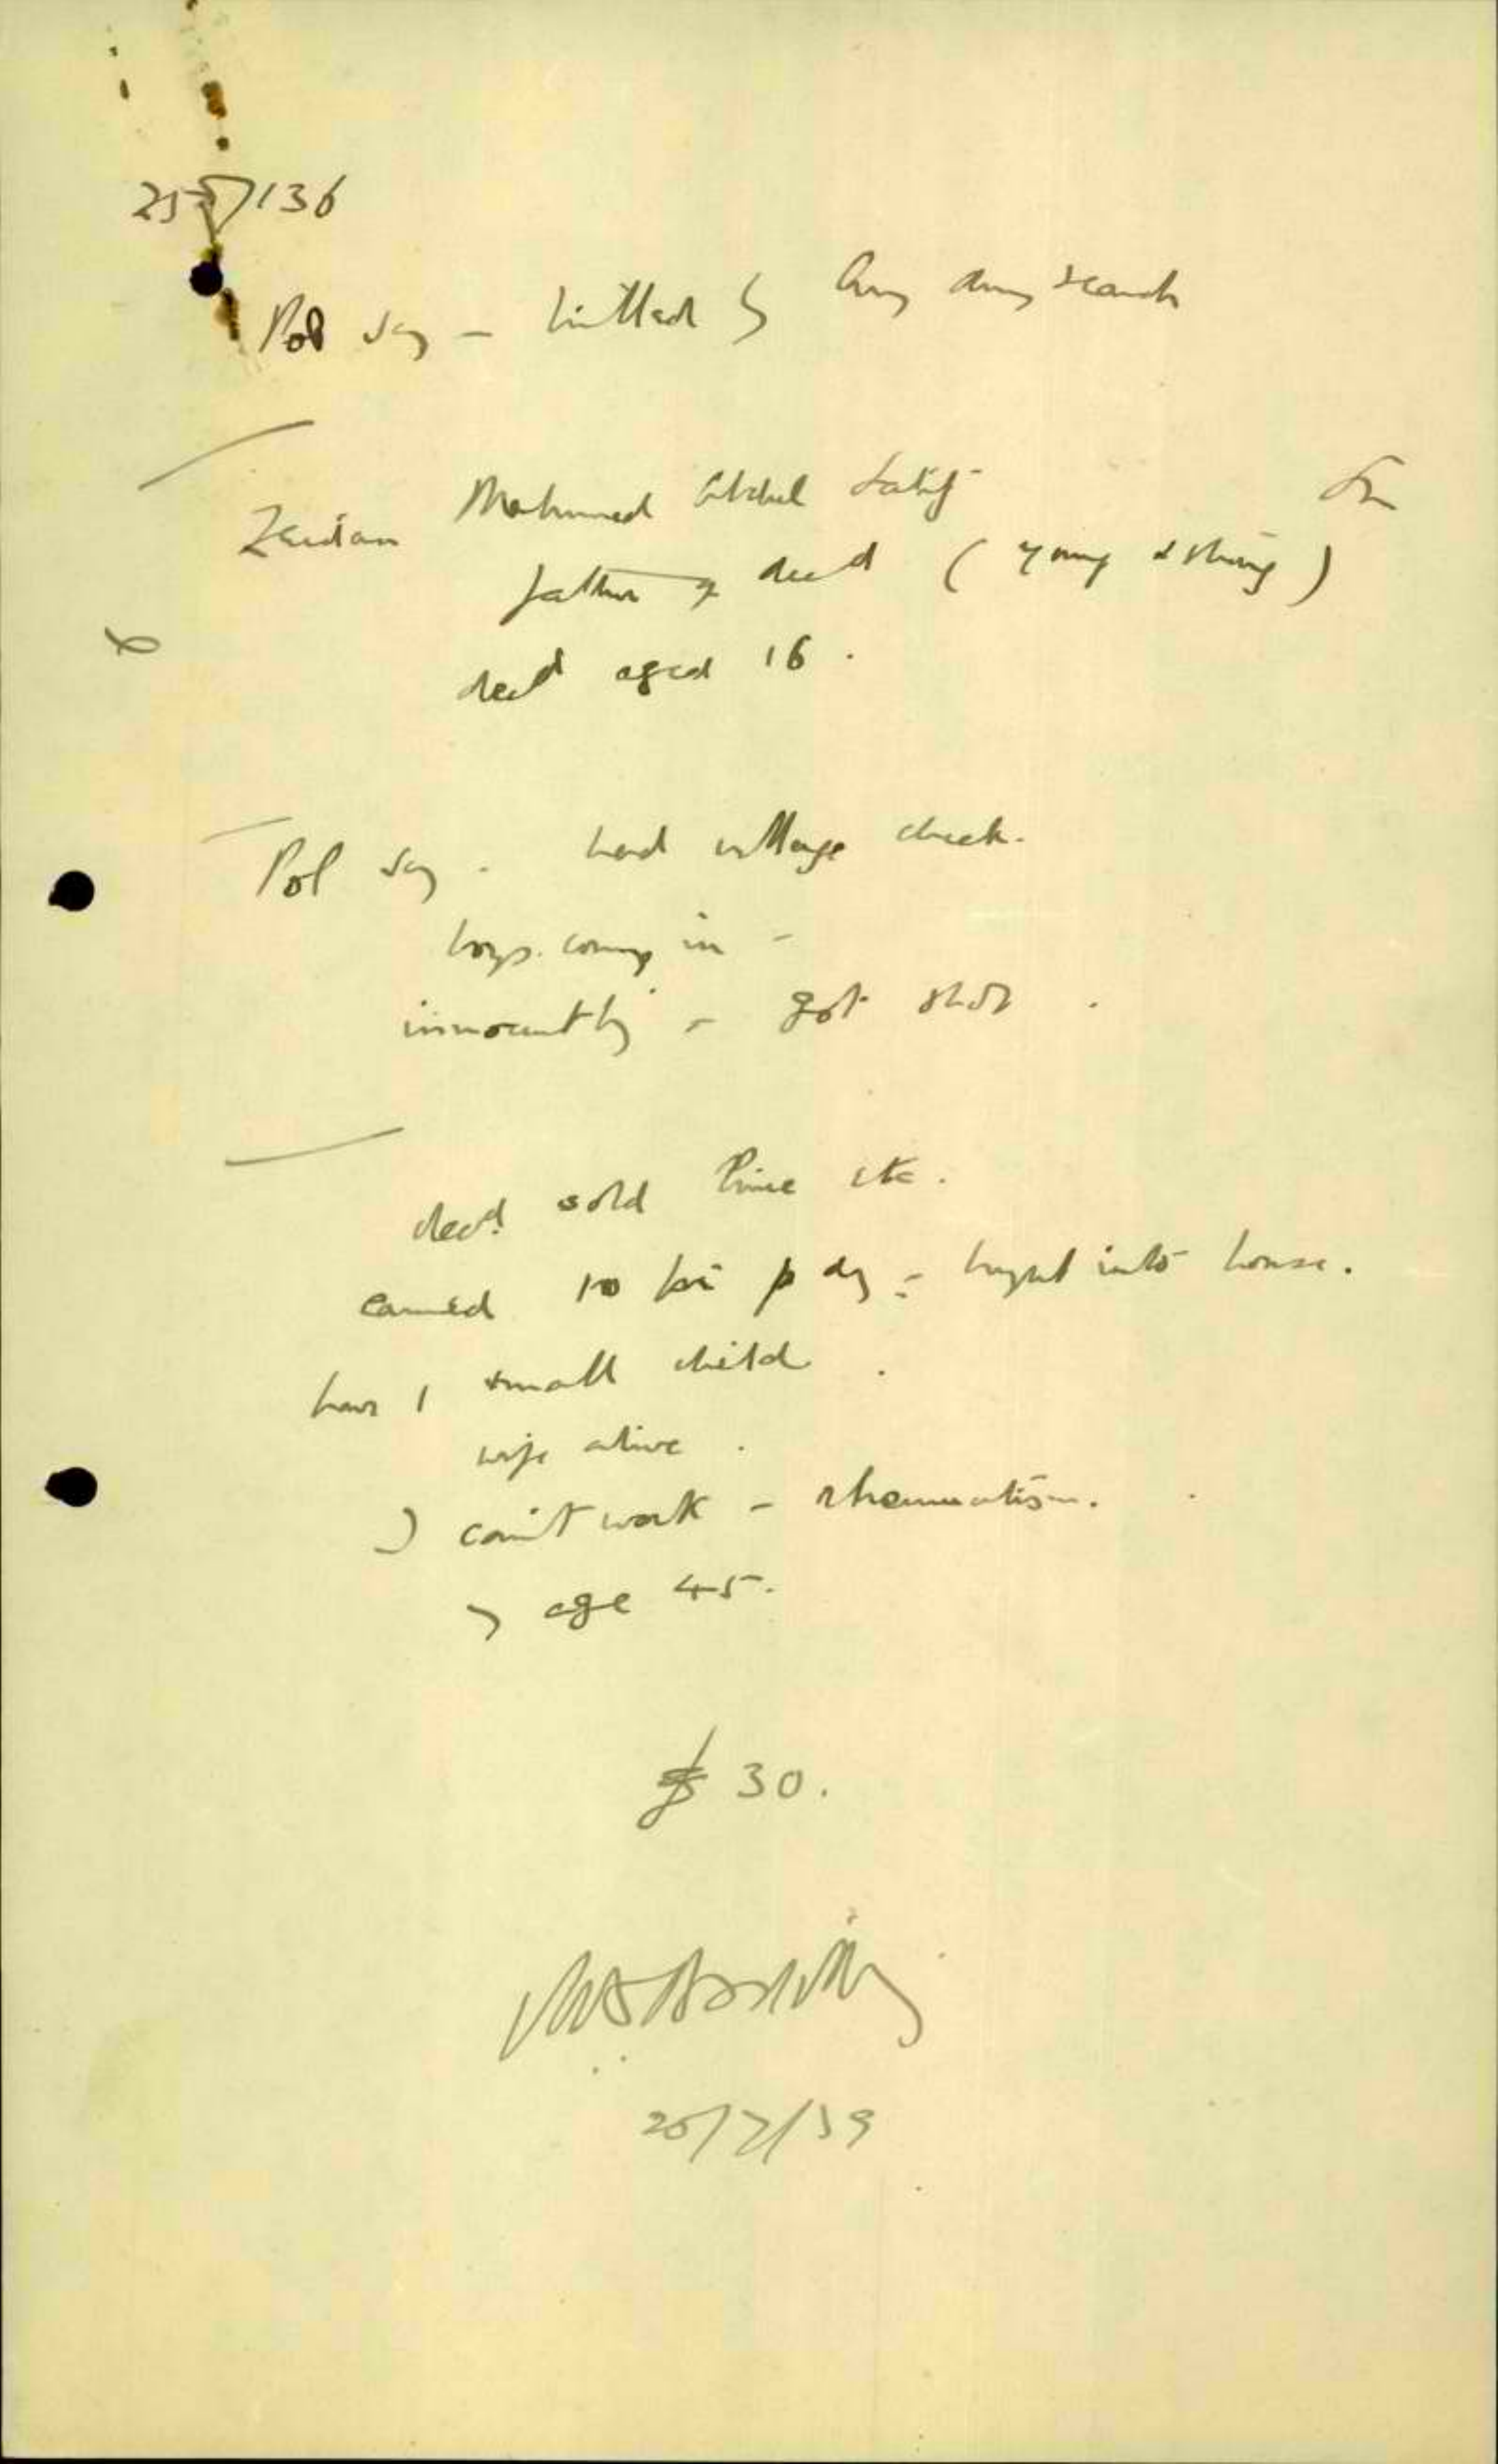 /136
Pol say - killed by Army during search
Zeidan Mohamed Abdul Latif
father of decd (young & strong)
decd aged 16.
Pol say - had village check.
boys coming in -
innocently - got shot.
decd sold lime etc.
earned 10 pi p day - brought into house.
have 1 small child.
wife alive.
I can't work - rheumatism.
age 45.
£ 30.
/7/39